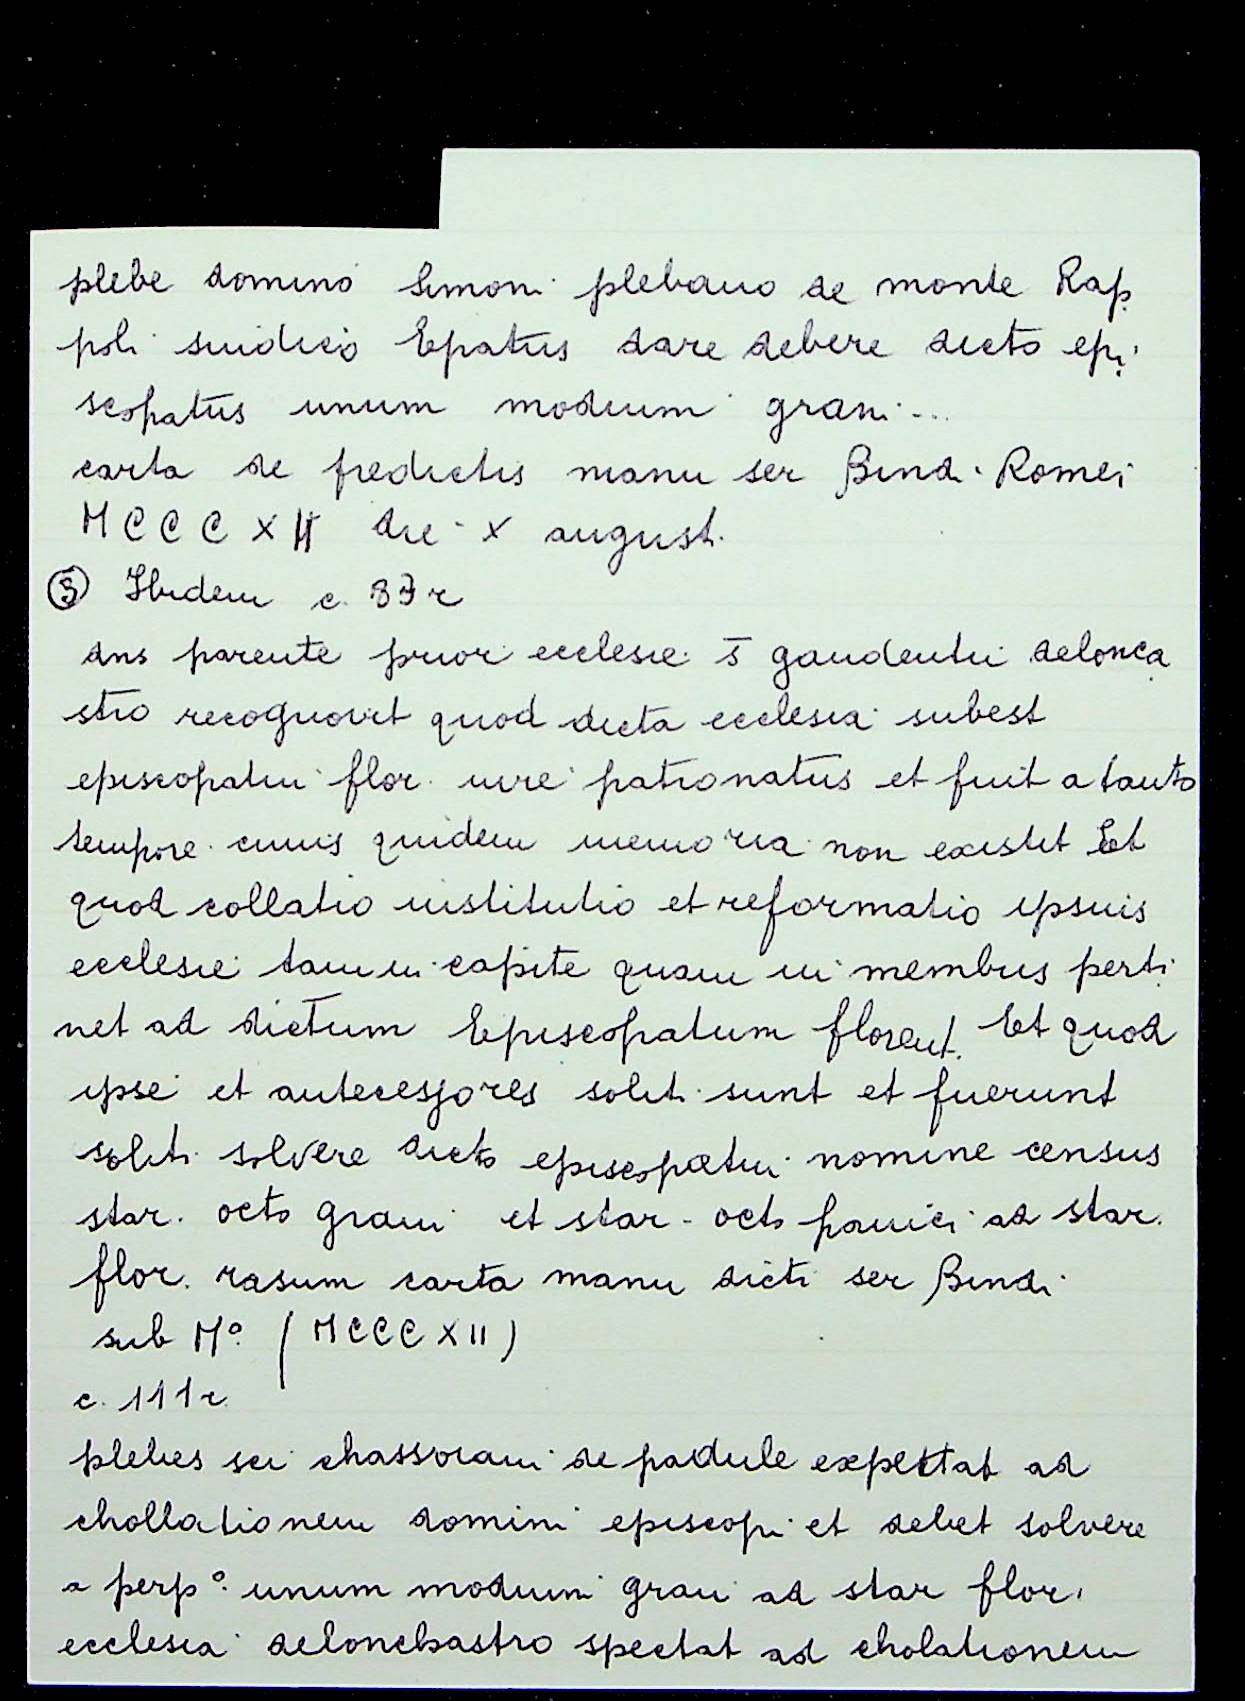 plebe domino Simoni plebano de monte Rap
poli sindico Epatus dare debere dicto epi
scopatus unum modium grani...
carta de predictis manu ser Bindi Romei
MCCCXII die X augusti
⑤ Ibidem c. 87r
dns parente prior ecclesie s̄ gaudentii delonca
stro recognovit quod dicta ecclesia subest
episcopatui flor. iure patronatus et fuit a tanto
tempore cuius quidem memoria non existit Et
quod collatio institutio et reformatio ipsuis
ecclesie tam in capite quam in membris perti
net ad dictum Episcopatum florent. Et quod
ipse et antecessores soliti sunt et fuerunt
soliti solvere dicto episcopatui nomine census
star. octo grani et star. octo panici ad star.
flor. rasum carta manu dicti ser Bindi
sub Mº. (MCCCXII)
c. 111r
plebes sci chassorani de padule expectat ad
chollationem domini episcopi et debet solvere
a perpº. unum modium grani ad star flor.
ecclesia delonchastro spectat ad cholationem